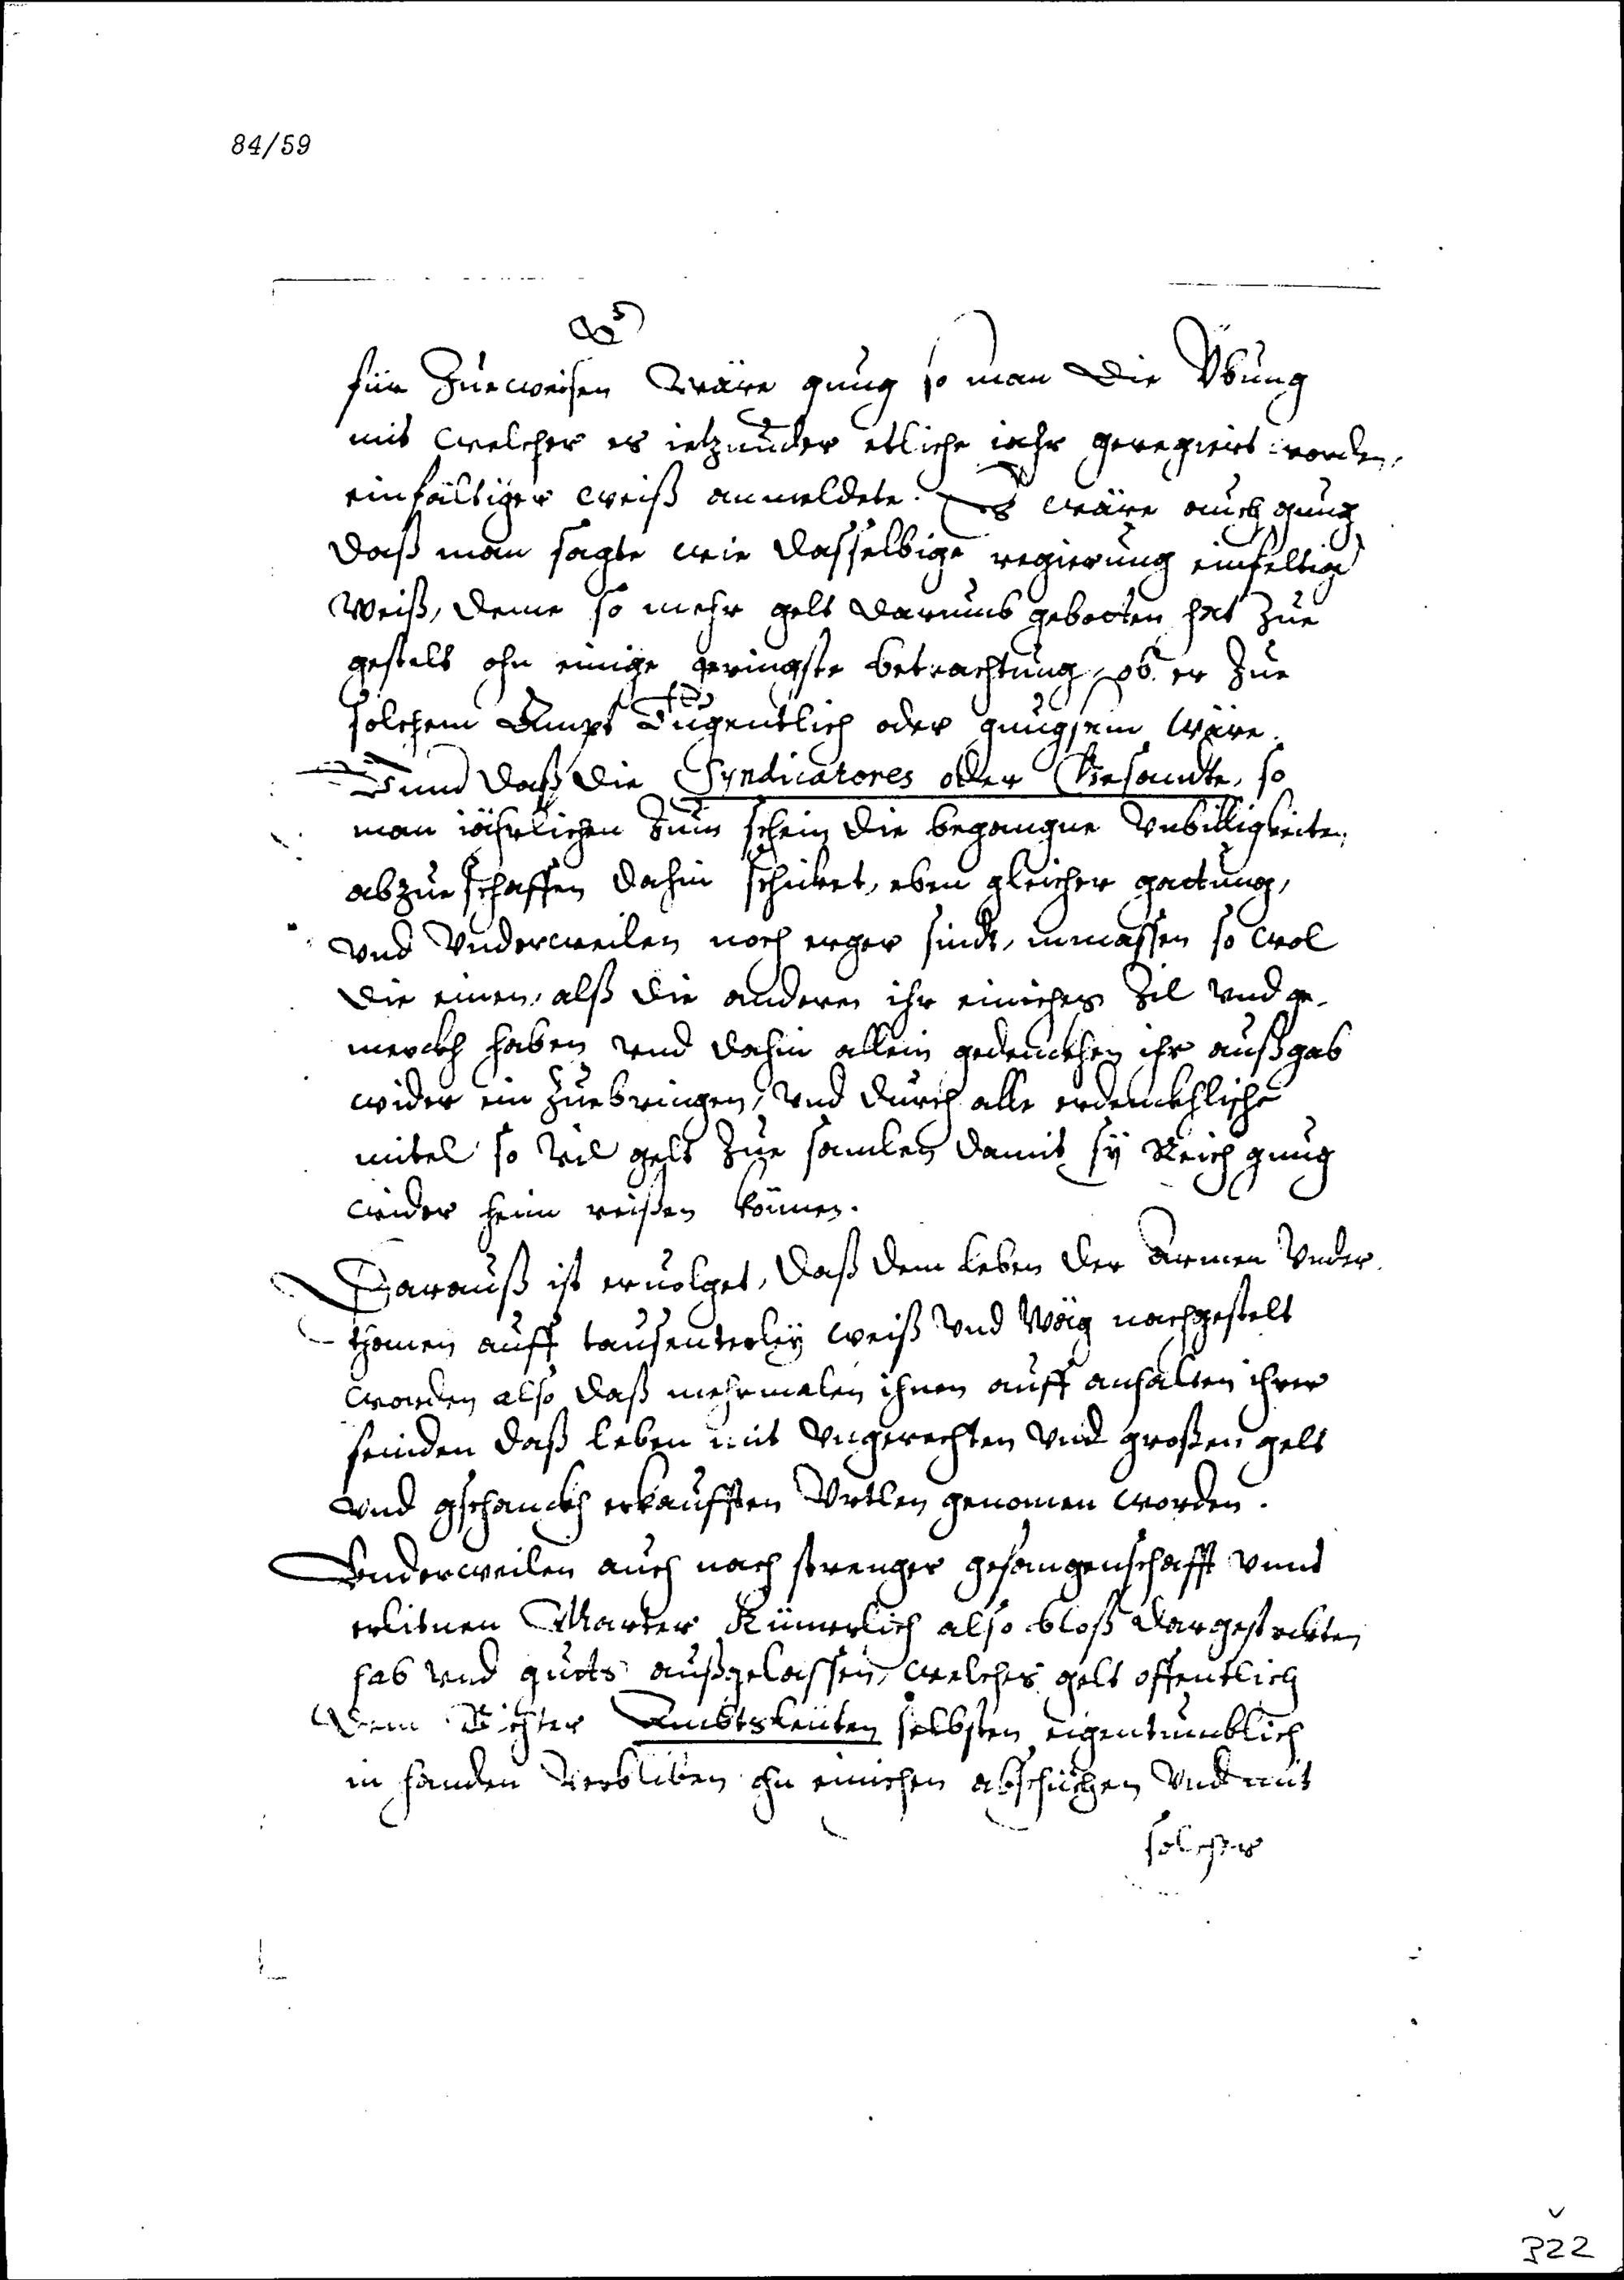 84/59
es
für Zueweisen Wäre gnug so man die Übung
mit welcher es ietzunder etliche iahr geregiert worden,
einfältiger weiß anmeldete. Es wäre auch gnug
daß man sagte wie dasselbige regierung einfeltig
Weiß, deme so mehr gelt darumb gebotten hat Zue
gestelt ohn einige geringste betrachtung ob er Zue
solchem Ampt Tugentlich oder gnugsam Wäre.
Vnnd daß die Syndicatores oder Gesandte, so
man iährlichen Zum schein die begangne Vnbilligkeiten
abzueschaffen dahin schicket, eben gleicher gattung,
vnd Vnderweilen noch erger sindt, inmassen so wol
die einen, alß die anderen ihr einiches Zil vnd ge-
merckh haben vnd dahin allein gedenckhen ihr außgab
wider ein Zuebringen, vnd durch alle erdenckhliche
mitel so vil gelt Zue samlen damit sÿ Reich gnug
wider heim reißen können.
Darauß ist eruolget, daß dem leben der armen Vnder-
thanen auff tausenterleÿ weiß Vnd Wäg nachgestelt
worden also daß mehrmalen ihnen auff anhalten ihrer
feinden daß leben mit Vngerechten Vnd großen gelt
vnd gschanckh erkaufften Vrtlen genomen worden.
Vnderweilen auch nach strenger gefangenschafft vnnd
erlitnen Marter Kümerlich also bloß dargestreckten
hab vnd guets außgelassen, welches gelt offentlich
dem Richter Ambtsleüten selbsten eigentumblich
in handen Verbliben ohn einichen abschüchen Vnd mit
solcher
322